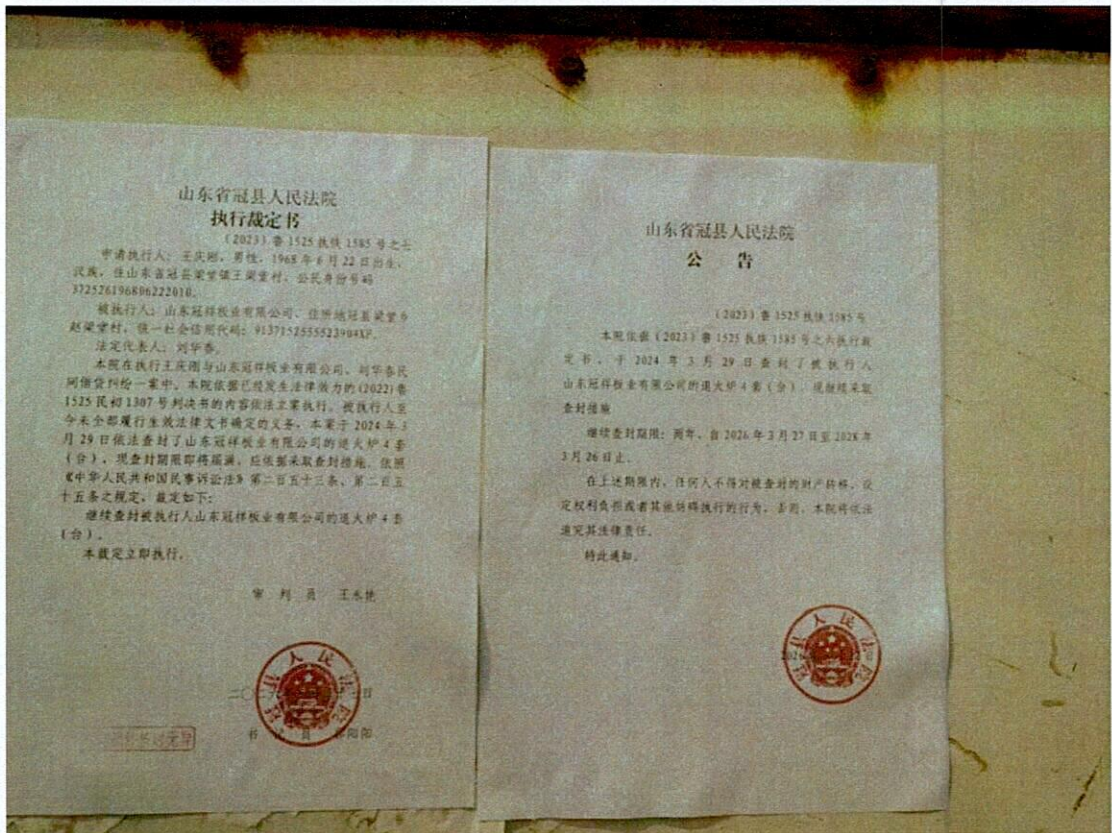 山东省冠县人民法院
执行裁定书
（2023）鲁 1525 执恢 1585 号之七
申请执行人：王庆刚，男性，1968 年 6 月 22 日出生，
汉族，住山东省冠县梁堂镇王梁堂村，公民身份号码
372526196806222010。
被执行人：山东冠祥板业有限公司，住所地冠县梁堂乡
赵梁堂村，统一社会信用代码：
法定代表人：刘华春。
本院在执行王庆刚与山东冠祥板业有限公司、刘华春民
间借贷纠纷一案中，本院依据已经发生法律效力的(2022)鲁
1525 民初 1307 号判决书的内容依法立案执行，被执行人至
今未全部履行生效法律文书确定的义务，本案于 2024 年 3
月 29 日依法查封了山东冠祥板业有限公司的退火炉 4 套
（台），现查封期限即将届满，应依据采取查封措施。依照
《中华人民共和国民事诉讼法》第二百五十三条、第二百五
十五条之规定，裁定如下：
继续查封被执行人山东冠祥板业有限公司的退火炉 4 套
（台）。
本裁定立即执行。
审 判 员 王永艳
冠县人民法院
二〇 日
书 员 阳阳
山东省冠县人民法院
公 告
（2023）鲁 1525 执恢 1585 号
本院依据（2023）鲁 1525 执恢 1585 号之六执行裁
定书，于 2024 年 3 月 29 日查封了被执行人
山东冠祥板业有限公司的退火炉 4 套（台），现继续采取
查封措施
继续查封期限：两年，自 2026 年 3 月 27 日至 2028 年
3 月 26 日止。
在上述期限内，任何人不得对被查封的财产转移、设
定权利负担或者其他妨碍执行的行为，否则，本院将依法
追究其法律责任。
特此通知。
冠县人民法院